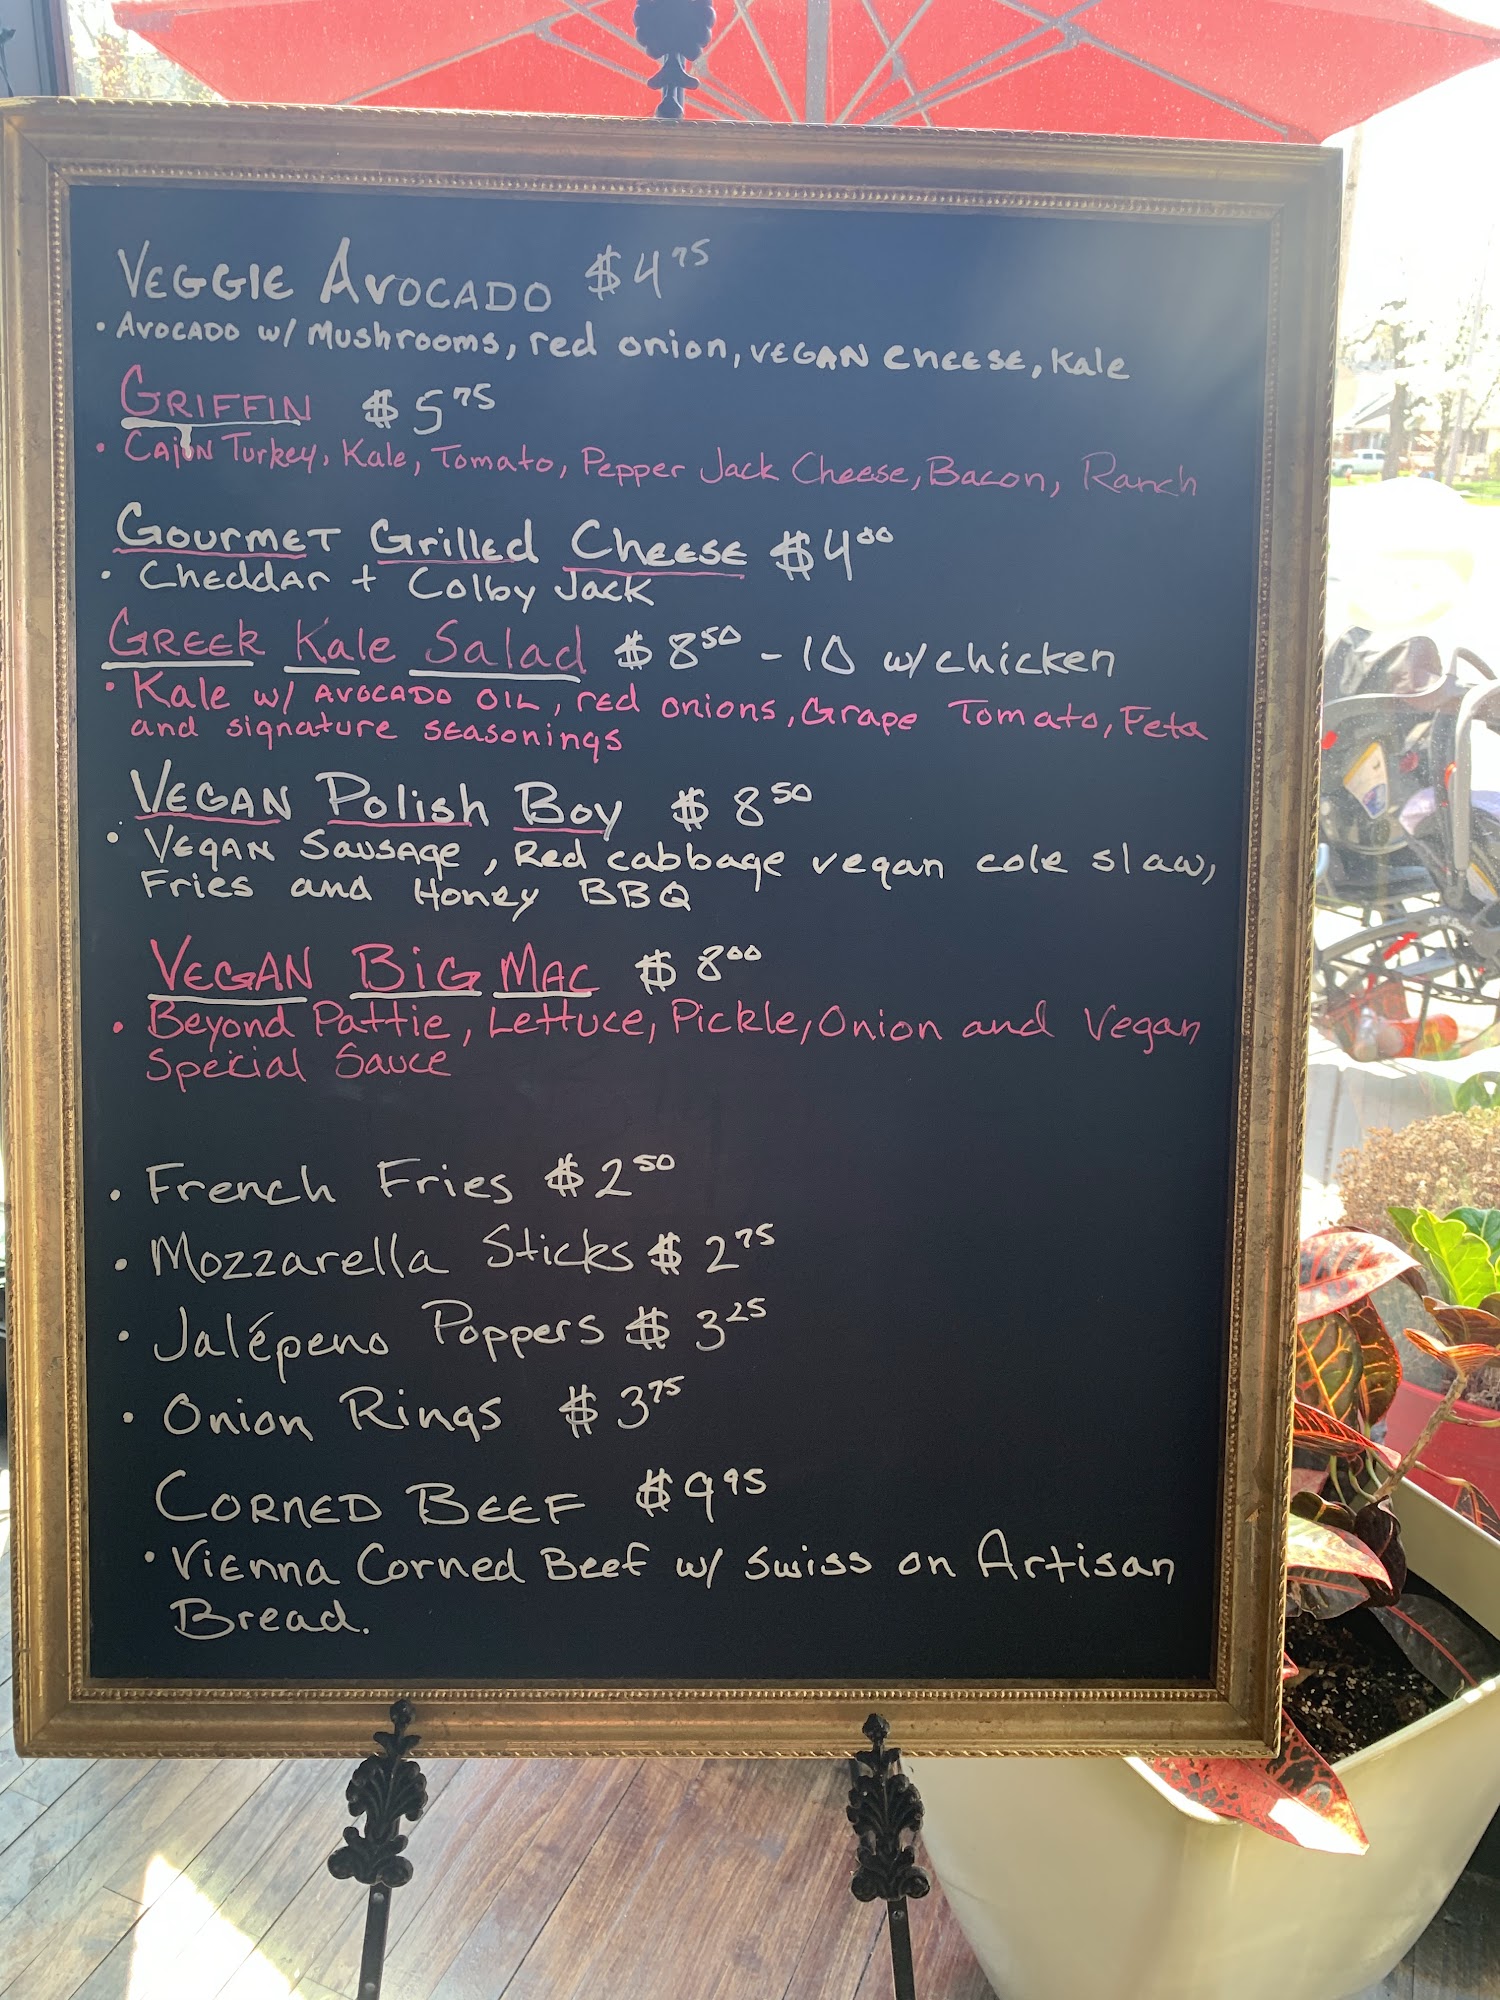 VEGGIE AVOCADO $4 75
• AVOCADO w/ Mushrooms, red onion, VEGAN CHEESE, Kale
GRIFFIN $5 75
• Cajun Turkey, Kale, Tomato, Pepper Jack Cheese, Bacon, Ranch
Gourmet Grilled Cheese $4 00
• Cheddar + Colby Jack
GREEK Kale Salad $8 50 - 10 w/ chicken
• Kale w/ AVOCADO OIL, red onions, Grape Tomato, Feta
and signature seasonings
VEGAN Polish Boy $8 50
• VEGAN Sausage, Red cabbage vegan cole slaw,
Fries and Honey BBQ
VEGAN BIG MAC $8 00
• Beyond Pattie, Lettuce, Pickle, Onion and Vegan
Special Sauce
• French Fries $2 50
• Mozzarella Sticks $2 75
• Jalépeno Poppers $3 25
• Onion Rings $3 75
CORNED BEEF $9 95
• Vienna Corned Beef w/ Swiss on Artisan
Bread.